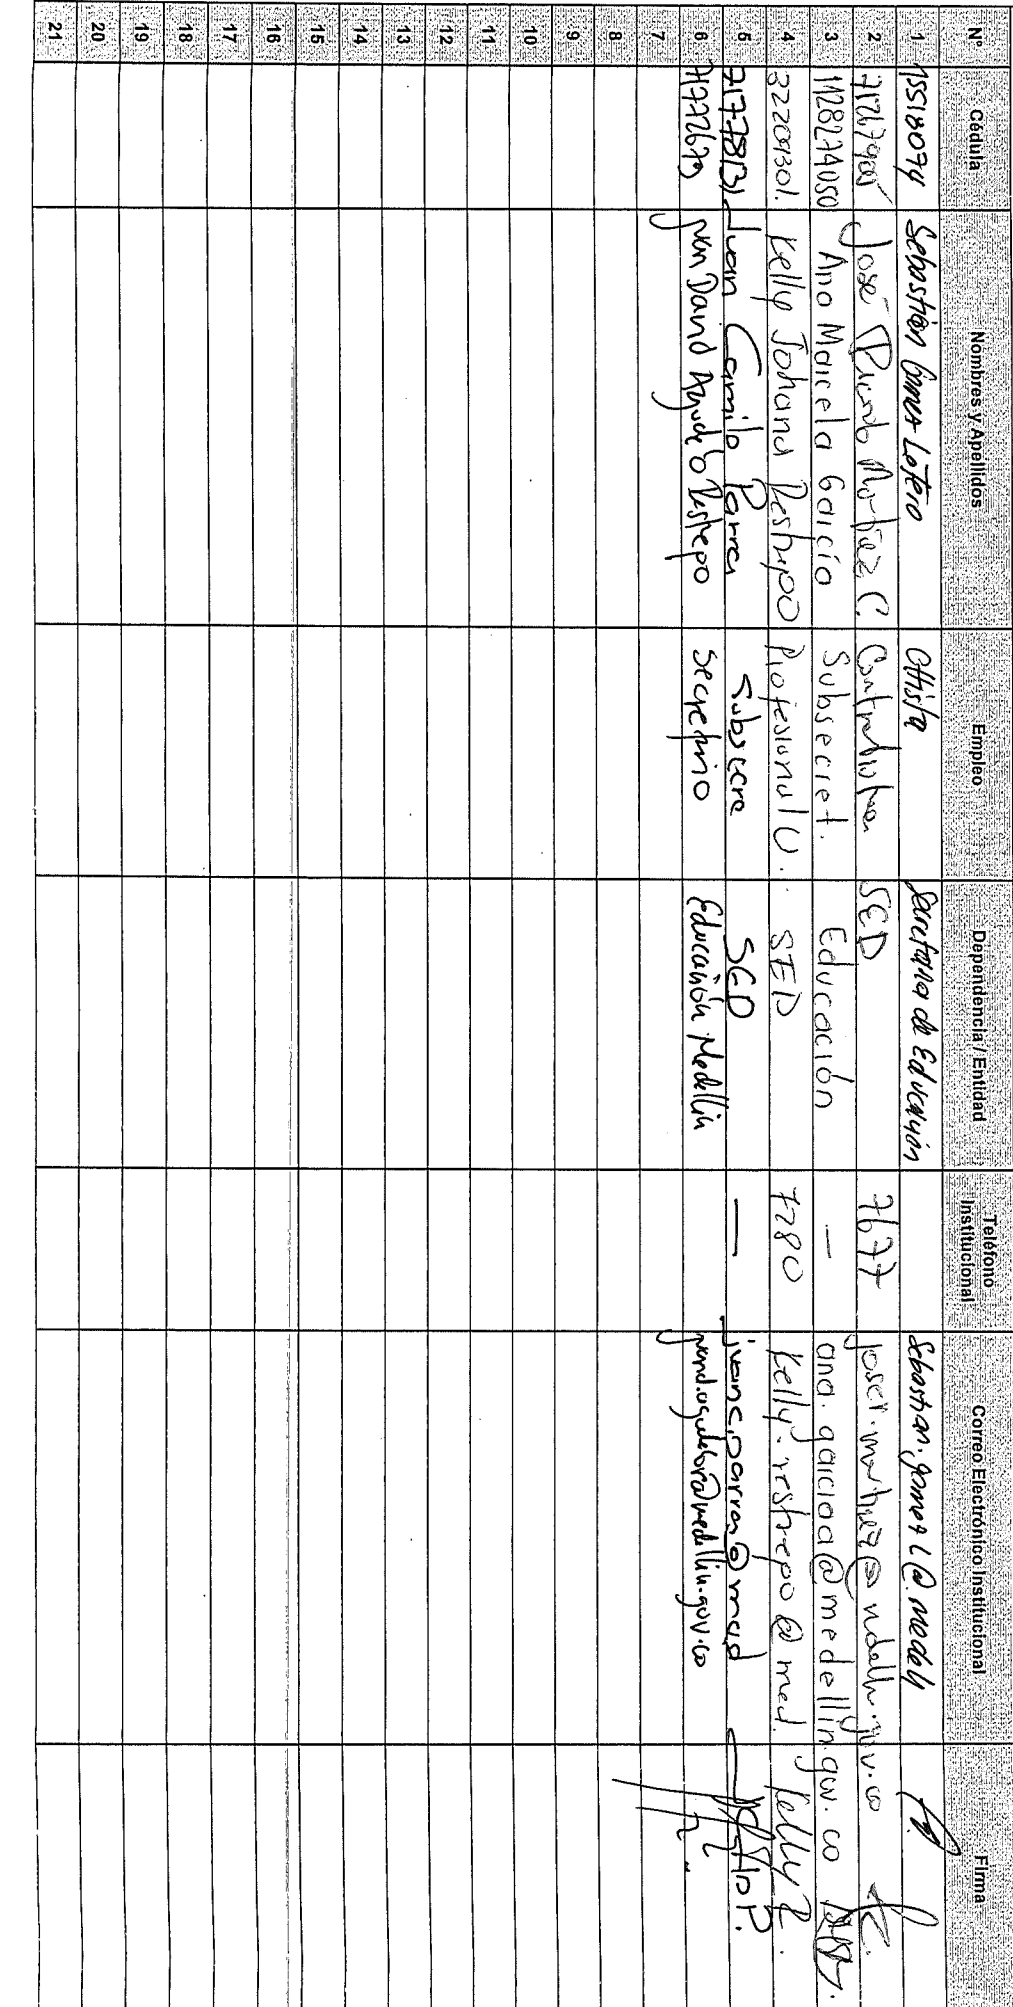 N° Cédula Nombres y Apellidos Empleo Dependencia / Entidad Teléfono Institucional Correo Electrónico Institucional Firma
1 15518074 Sebastián Gómez Lotero Secretaria de Educación
2 José Martínez C. Contratista SED 7677
3 1128274050 Ana Marcela García Subsecret. Educación — ana.garciaa@medellin.gov.co
4 32209301. Kelly Johana Restrepo Profesional U. SED 7280 Kelly.restrepo@med. Kelly R.
5 71778131 Juan Camilo Parra Subsecre SED — juanc.parra@med
6 Juan David Agudelo Restrepo Secretario Educación Medellín juand.agudelor@medellin.gov.co
7
8
9
10
11
12
13
14
15
16
17
18
19
20
21